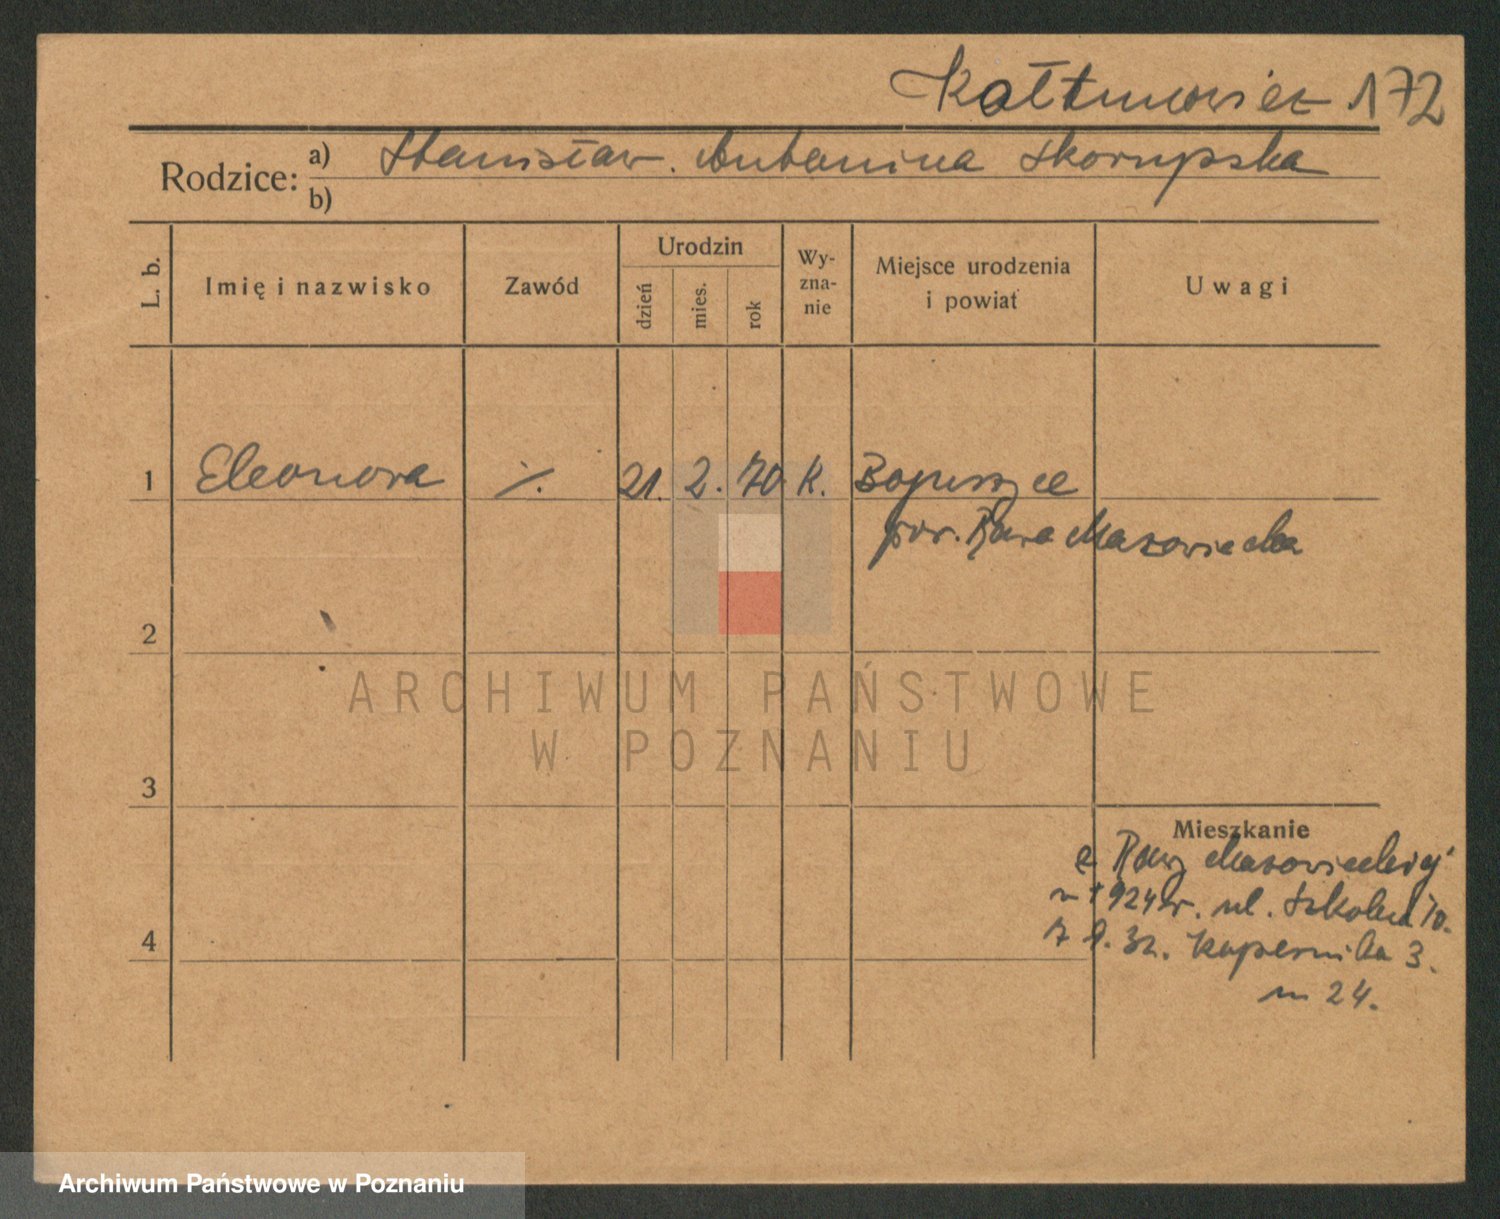 Kołtunowicz 172
Rodzice: a) Stanisław. Antonina Skorupska
b)
L. b. Imię i nazwisko Zawód Urodzin dzień mies. rok Wy-zna-nie Miejsce urodzenia i powiat Uwagi
1 Eleonora ·/. 21. 2. 70 K. Boguszyce
pow. Rawa Mazowiecka
2
ARCHIWUM PAŃSTWOWE
W POZNANIU
3
Mieszkanie
z Rawy Mazowieckiej
w 1924 r. ul. Szkolna 10.
4
Kopernika 3.
m 24.
Archiwum Państwowe w Poznaniu